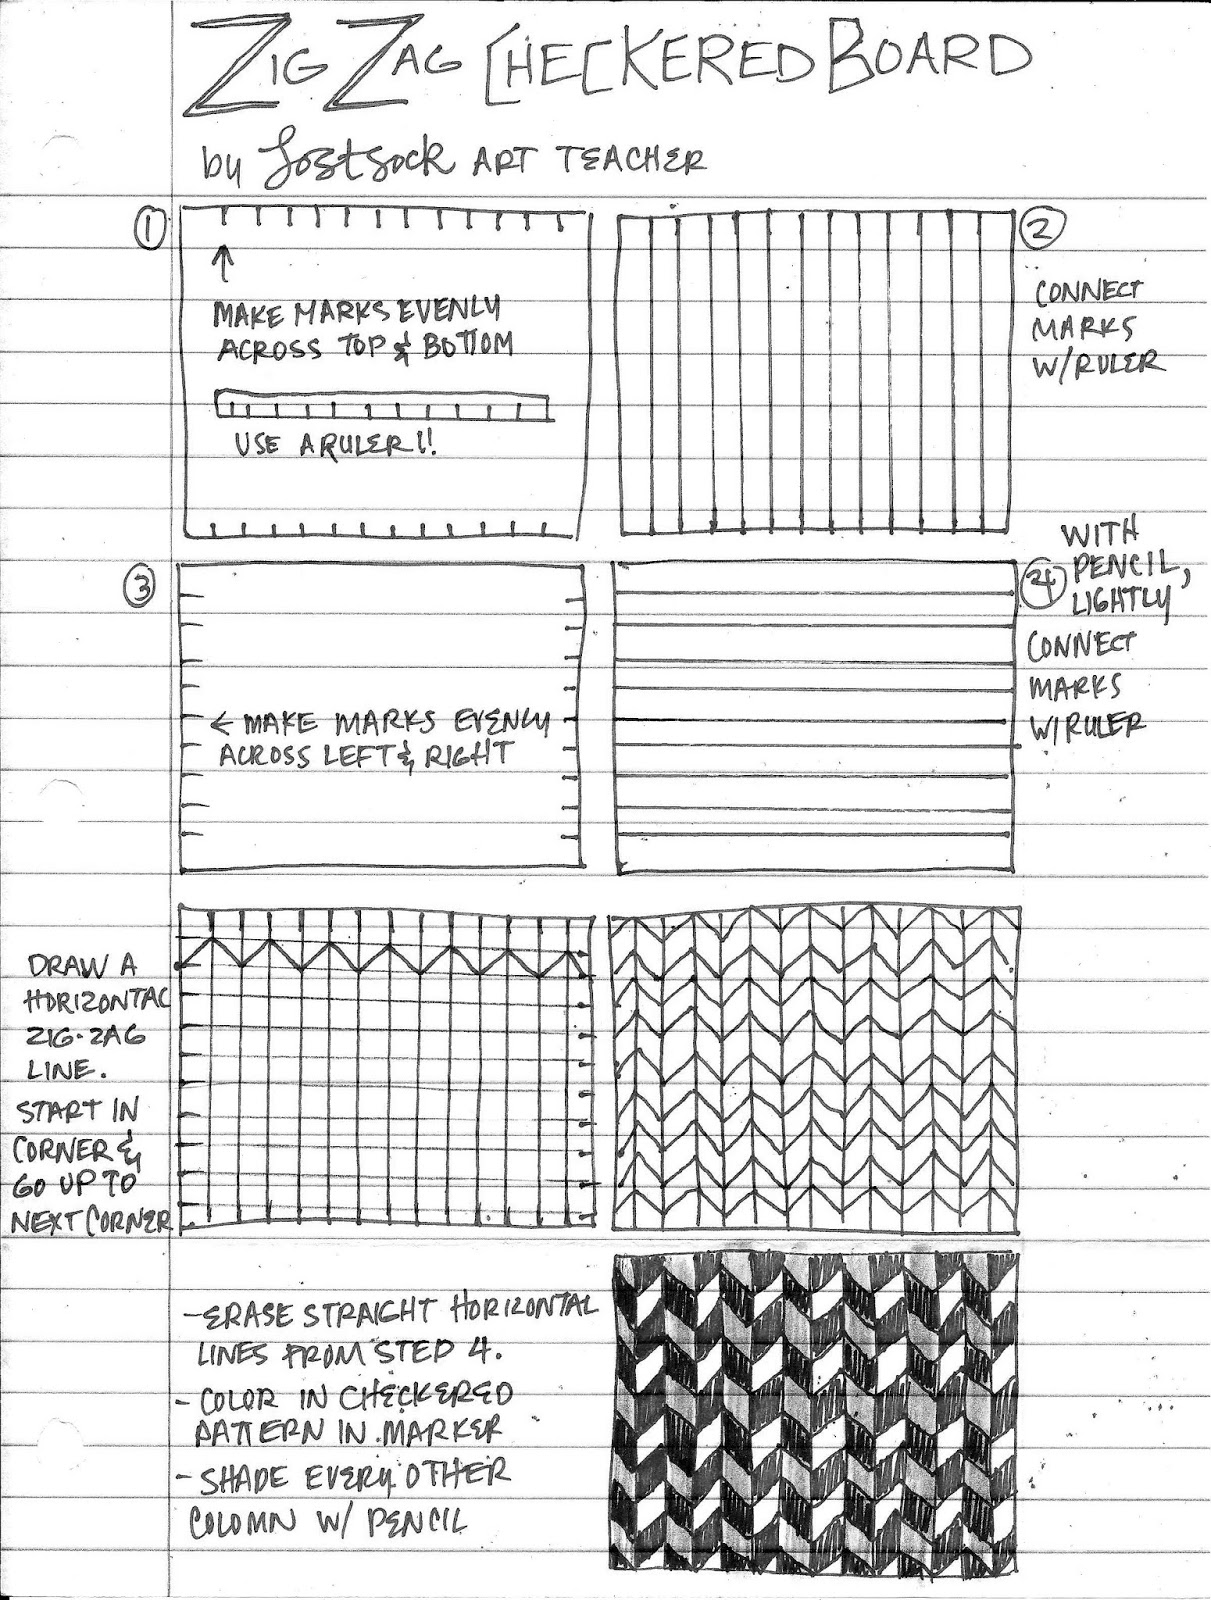 ZIG ZAG CHECKERED BOARD
by Lostsock ART TEACHER
1
MAKE MARKS EVENLY
ACROSS TOP & BOTTOM
USE A RULER!!
2
CONNECT
MARKS
W/RULER
3
← MAKE MARKS EVENLY
ACROSS LEFT & RIGHT
4
WITH
PENCIL,
LIGHTLY
CONNECT
MARKS
W/RULER
DRAW A
HORIZONTAL
ZIG-ZAG
LINE.
START IN
CORNER &
GO UP TO
NEXT CORNER
- ERASE STRAIGHT HORIZONTAL
LINES FROM STEP 4.
- COLOR IN CHECKERED
PATTERN IN MARKER
- SHADE EVERY OTHER
COLOMN W/ PENCIL